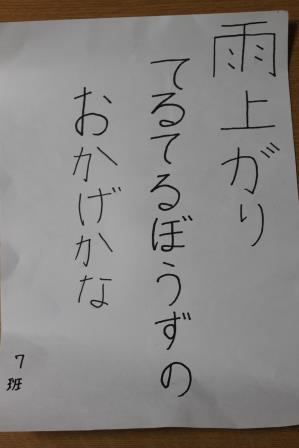 雨上がり
てるてるぼうずの
おかげかな
7班